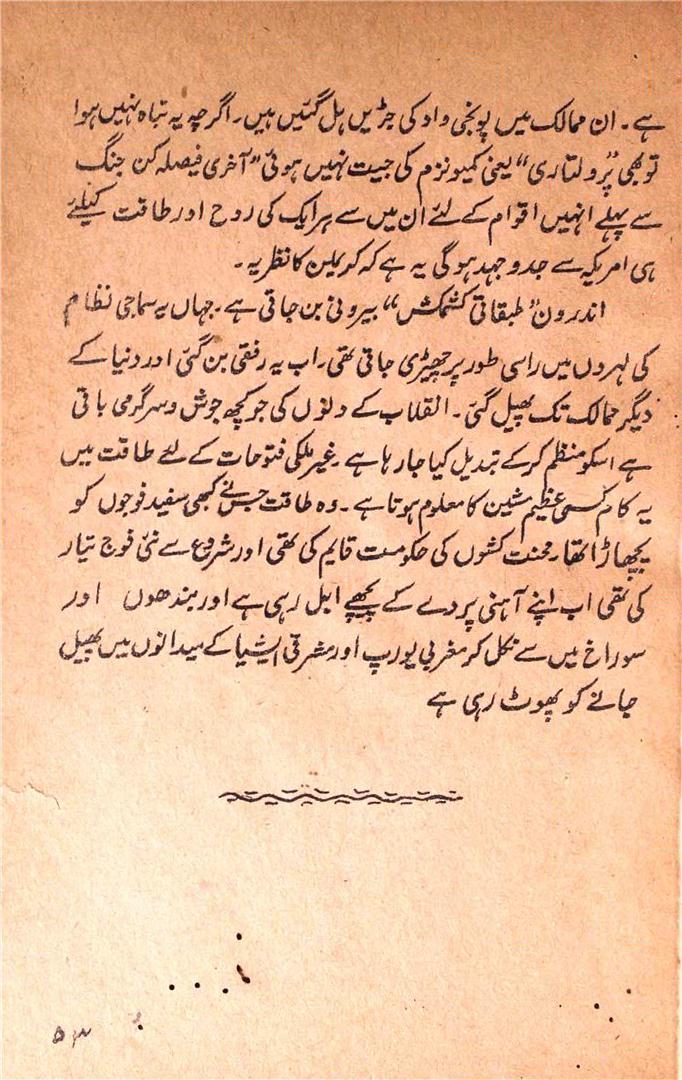 ہے۔ ان ممالک میں پونجی واد کی جڑیں ہل گئیں ہیں۔ اگرچہ یہ تباہ نہیں ہوا
تو بھی ”پرولتاری“ یعنی کمیونزم کی جیت نہیں ہوئی ”آخری فیصلہ کن جنگ
سے پہلے انہیں اقوام کے لئے ان میں سے ہر ایک کی روح اور طاقت کیلئے
ہی امریکہ سے جدوجہد ہوگی یہ ہے کہ کریملن کا نظریہ۔
اندرون ”طبقاتی کشمکش“ بیرونی بن جاتی ہے۔ جہاں یہ سماجی نظام
کی لہروں میں راسی طور پر چھیڑی جاتی تھی۔ اب یہ رفقی بن گئی اور دنیا کے
دیگر ممالک تک پھیل گئی۔ انقلاب کے دنوں کی جو کچھ جوش و سرگرمی باقی
ہے اسکو منظم کرکے تبدیل کیا جا رہا ہے۔ غیر ملکی فتوحات کے لئے طاقت میں
یہ کام کسی عظیم مشین کا معلوم ہوتا ہے۔ وہ طاقت جس نے کبھی سفید فوجوں کو
پچھاڑا تھا۔ محنت کشوں کی حکومت قایم کی تھی اور شروع سے نئی فوج تیار
کی تھی اب اپنے آہنی پردے کے پیچھے ابل رہی ہے اور بندھوں اور
سوراخ میں سے نکل کر مغربی یورپ اور مشرقی ایشیا کے میدانوں میں پھیل
جانے کو پھوٹ رہی ہے
۵۳